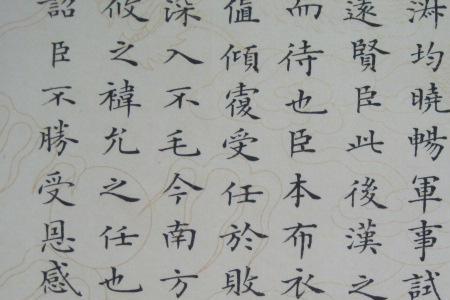 淑均曉暢軍事試
遠賢臣此後漢之
而待也臣本布衣
值傾覆受任於敗
深入不毛今南方
攸之禕允之任也
詔臣不勝受恩感